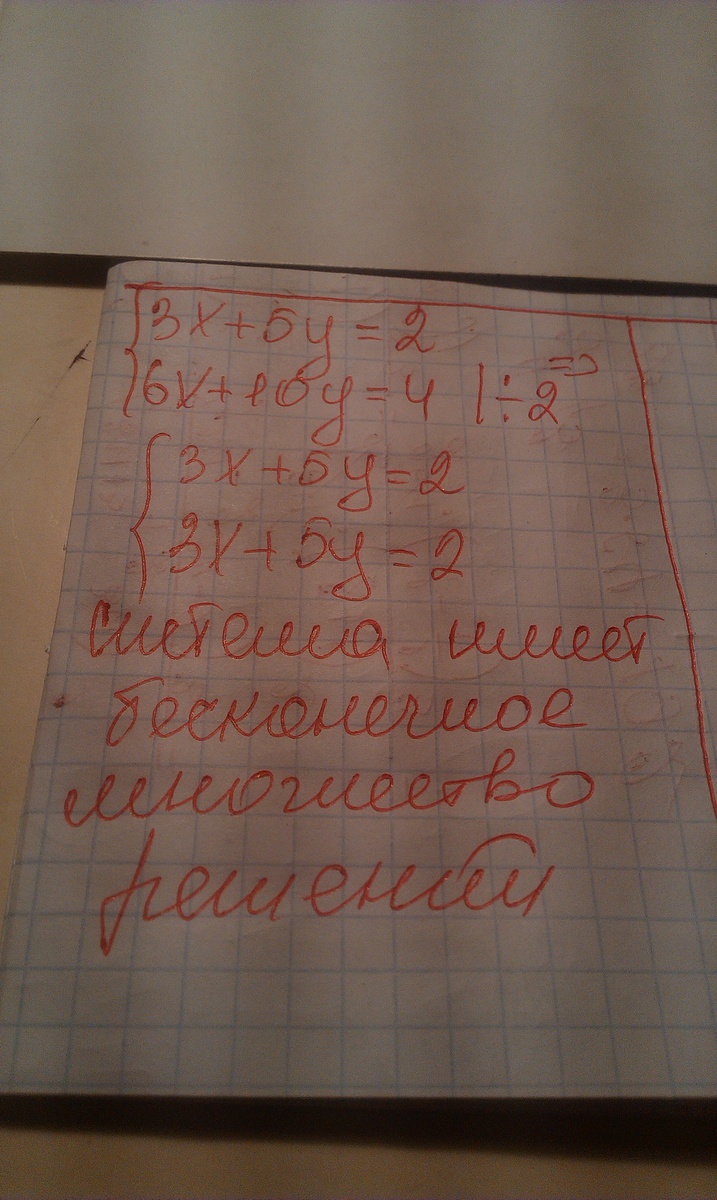 {3x+5y=2
{6x+10y=4 |÷2 =>
{3x+5y=2
{3x+5y=2
система имеет
бесконечное
множество
решений